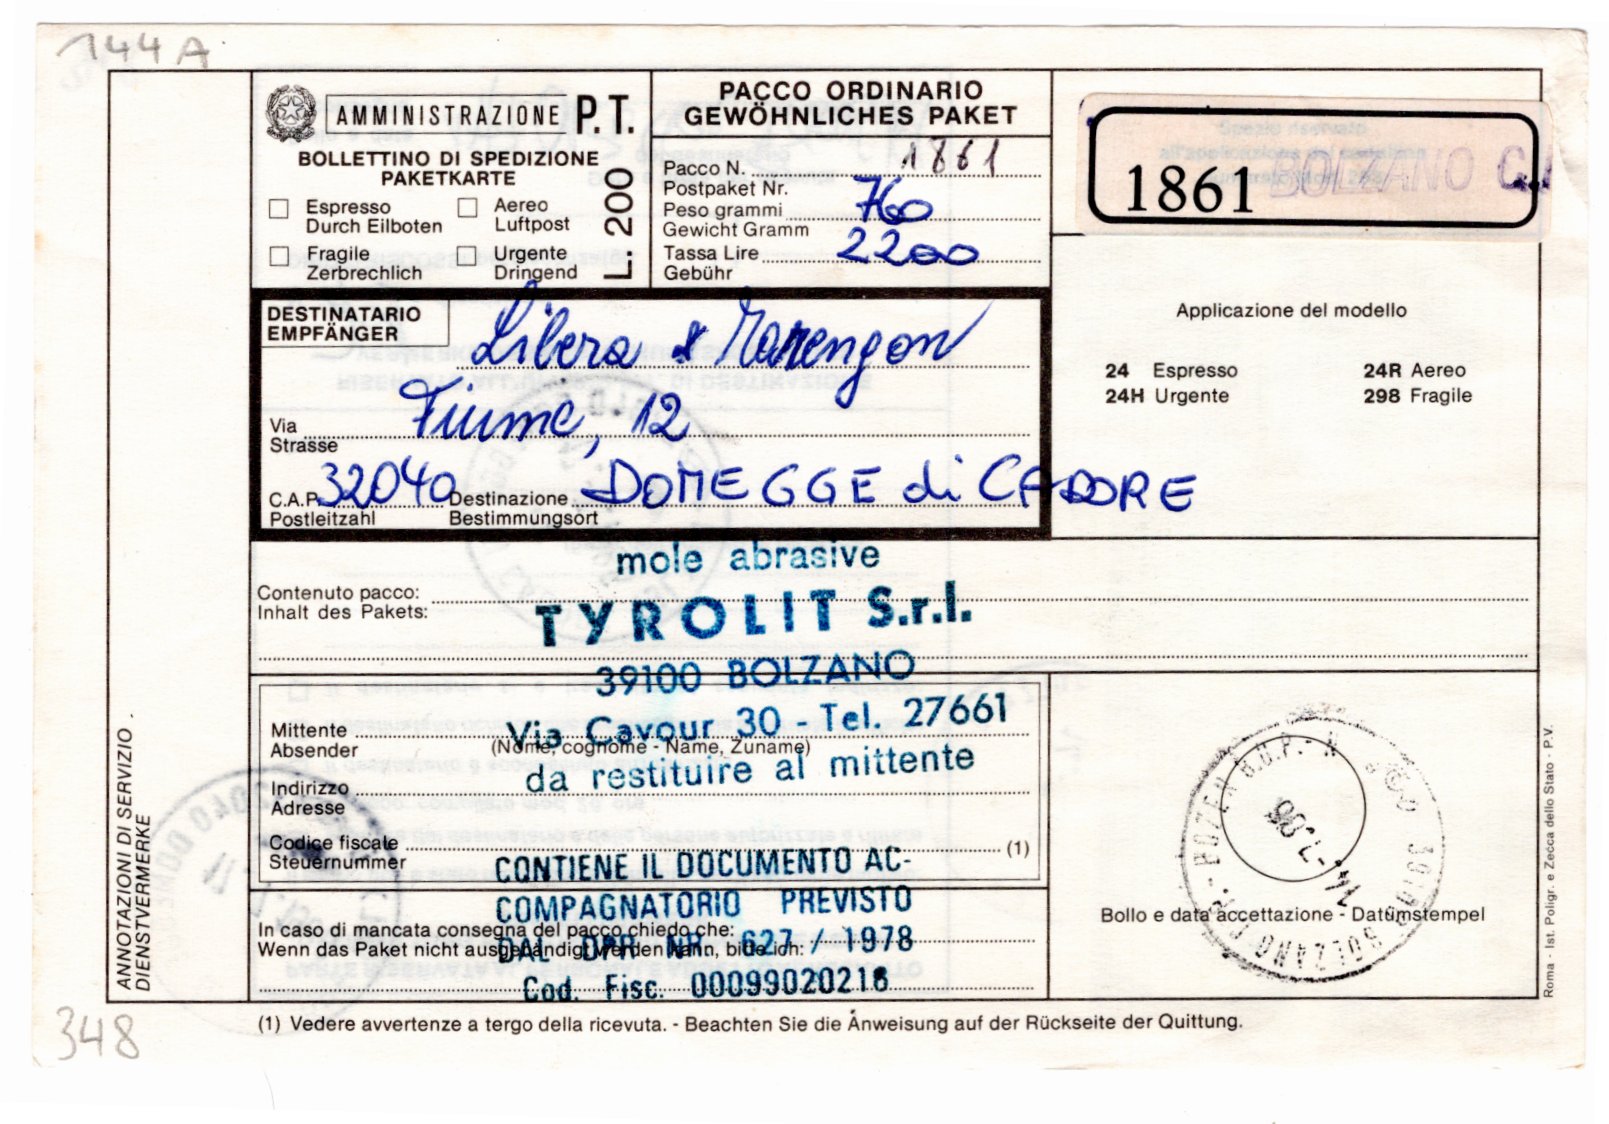 144 A
AMMINISTRAZIONE P.T.
BOLLETTINO DI SPEDIZIONE
PAKETKARTE
Espresso
Durch Eilboten
Aereo
Luftpost
Fragile
Zerbrechlich
Urgente
Dringend
L. 200
PACCO ORDINARIO
GEWÖHNLICHES PAKET
Pacco N. 1861
Postpaket Nr.
Peso grammi 760
Gewicht Gramm
Tassa Lire 2200
Gebühr
1861 BOLZANO C.
DESTINATARIO
EMPFÄNGER
Libera & Marengon
Via Fiume, 12
Strasse
C.A.P. 32040 Destinazione DOMEGGE di CADORE
Postleitzahl Bestimmungsort
Applicazione del modello
24 Espresso 24R Aereo
24H Urgente 298 Fragile
mole abrasive
Contenuto pacco:
Inhalt des Pakets:
TYROLIT S.r.l.
39100 BOLZANO
Via Cavour 30 - Tel. 27661
Mittente
Absender
(Nome, cognome - Name, Zuname)
da restituire al mittente
Indirizzo
Adresse
Codice fiscale (1)
Steuernummer
CONTIENE IL DOCUMENTO AC-
COMPAGNATORIO PREVISTO
In caso di mancata consegna del pacco chiedo che:
Wenn das Paket nicht ausgehändigt werden kann, bitte ich:
DAL DPR NR 627 / 1978
Cod. Fisc. 00099020216
Bollo e data accettazione - Datumstempel
ANNOTAZIONI DI SERVIZIO
DIENSTVERMERKE
Roma - Ist. Poligr. e Zecca dello Stato - P.V.
(1) Vedere avvertenze a tergo della ricevuta. - Beachten Sie die Anweisung auf der Rückseite der Quittung.
348